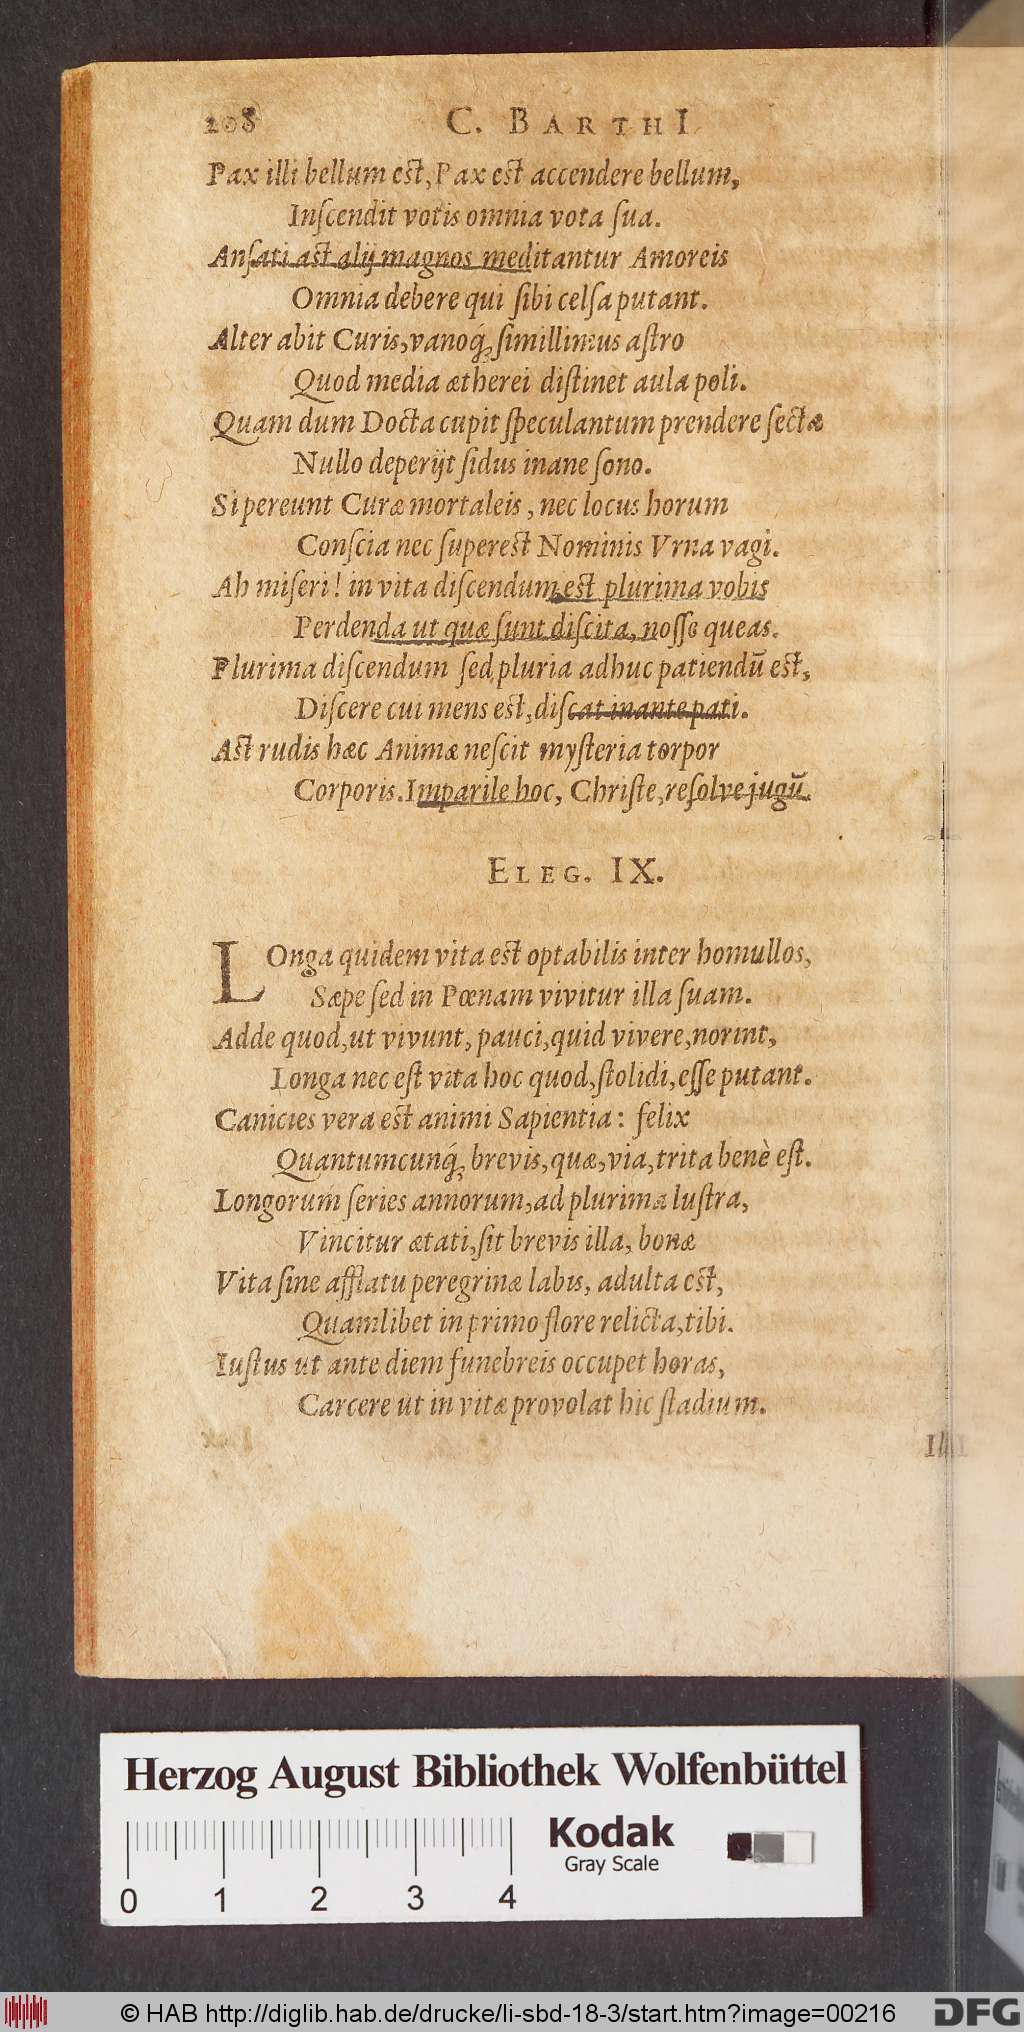 208 C. BARTHI
Pax illi bellum est, Pax est accendere bellum,
Inſcendit votis omnia vota ſua.
Anſati ast alij magnos meditantur Amoreis
Omnia debere qui ſibi celſa putant.
Alter abit Curis, vanoq́; ſimillimus aſtro
Quod media ætherei diſtinet aula poli.
Quam dum Docta cupit ſpeculantum prendere ſectæ
Nullo deperijt ſidus inane ſono.
Si pereunt Curæ mortaleis, nec locus horum
Conſcia nec ſuperest Nominis Vrna vagi.
Ah miſeri! in vita diſcendum est plurima vobis
Perdenda ut quæ ſunt diſcita, noſſe queas.
Plurima diſcendum ſed pluria adhuc patiendū est,
Diſcere cui mens est, diſcat in ante pati.
Ast rudis hæc Animæ neſcit myſteria torpor
Corporis. Imparile hoc, Chriſte, reſolve jugū.
ELEG. IX.
LOnga quidem vita est optabilis inter homullos,
Sæpe ſed in Pœnam vivitur illa ſuam.
Adde quod, ut vivunt, pauci, quid vivere, norint,
Longa nec eſt vita hoc quod, ſtolidi, eſſe putant.
Canicies vera est animi Sapientia: felix
Quantumcunq́; brevis, quæ, via, trita benè eſt.
Longorum ſeries annorum, ad plurima luſtra,
Vincitur ætati, ſit brevis illa, bonæ
Vita ſine afflatu peregrinæ labis, adulta est,
Quamlibet in primo flore relicta, tibi.
Iuſtus ut ante diem funebreis occupet horas,
Carcere ut in vitæ provolat hic ſtadium.
Herzog August Bibliothek Wolfenbüttel
Kodak
Gray Scale
0 1 2 3 4
© HAB http://diglib.hab.de/drucke/li-sbd-18-3/start.htm?image=00216
DFG